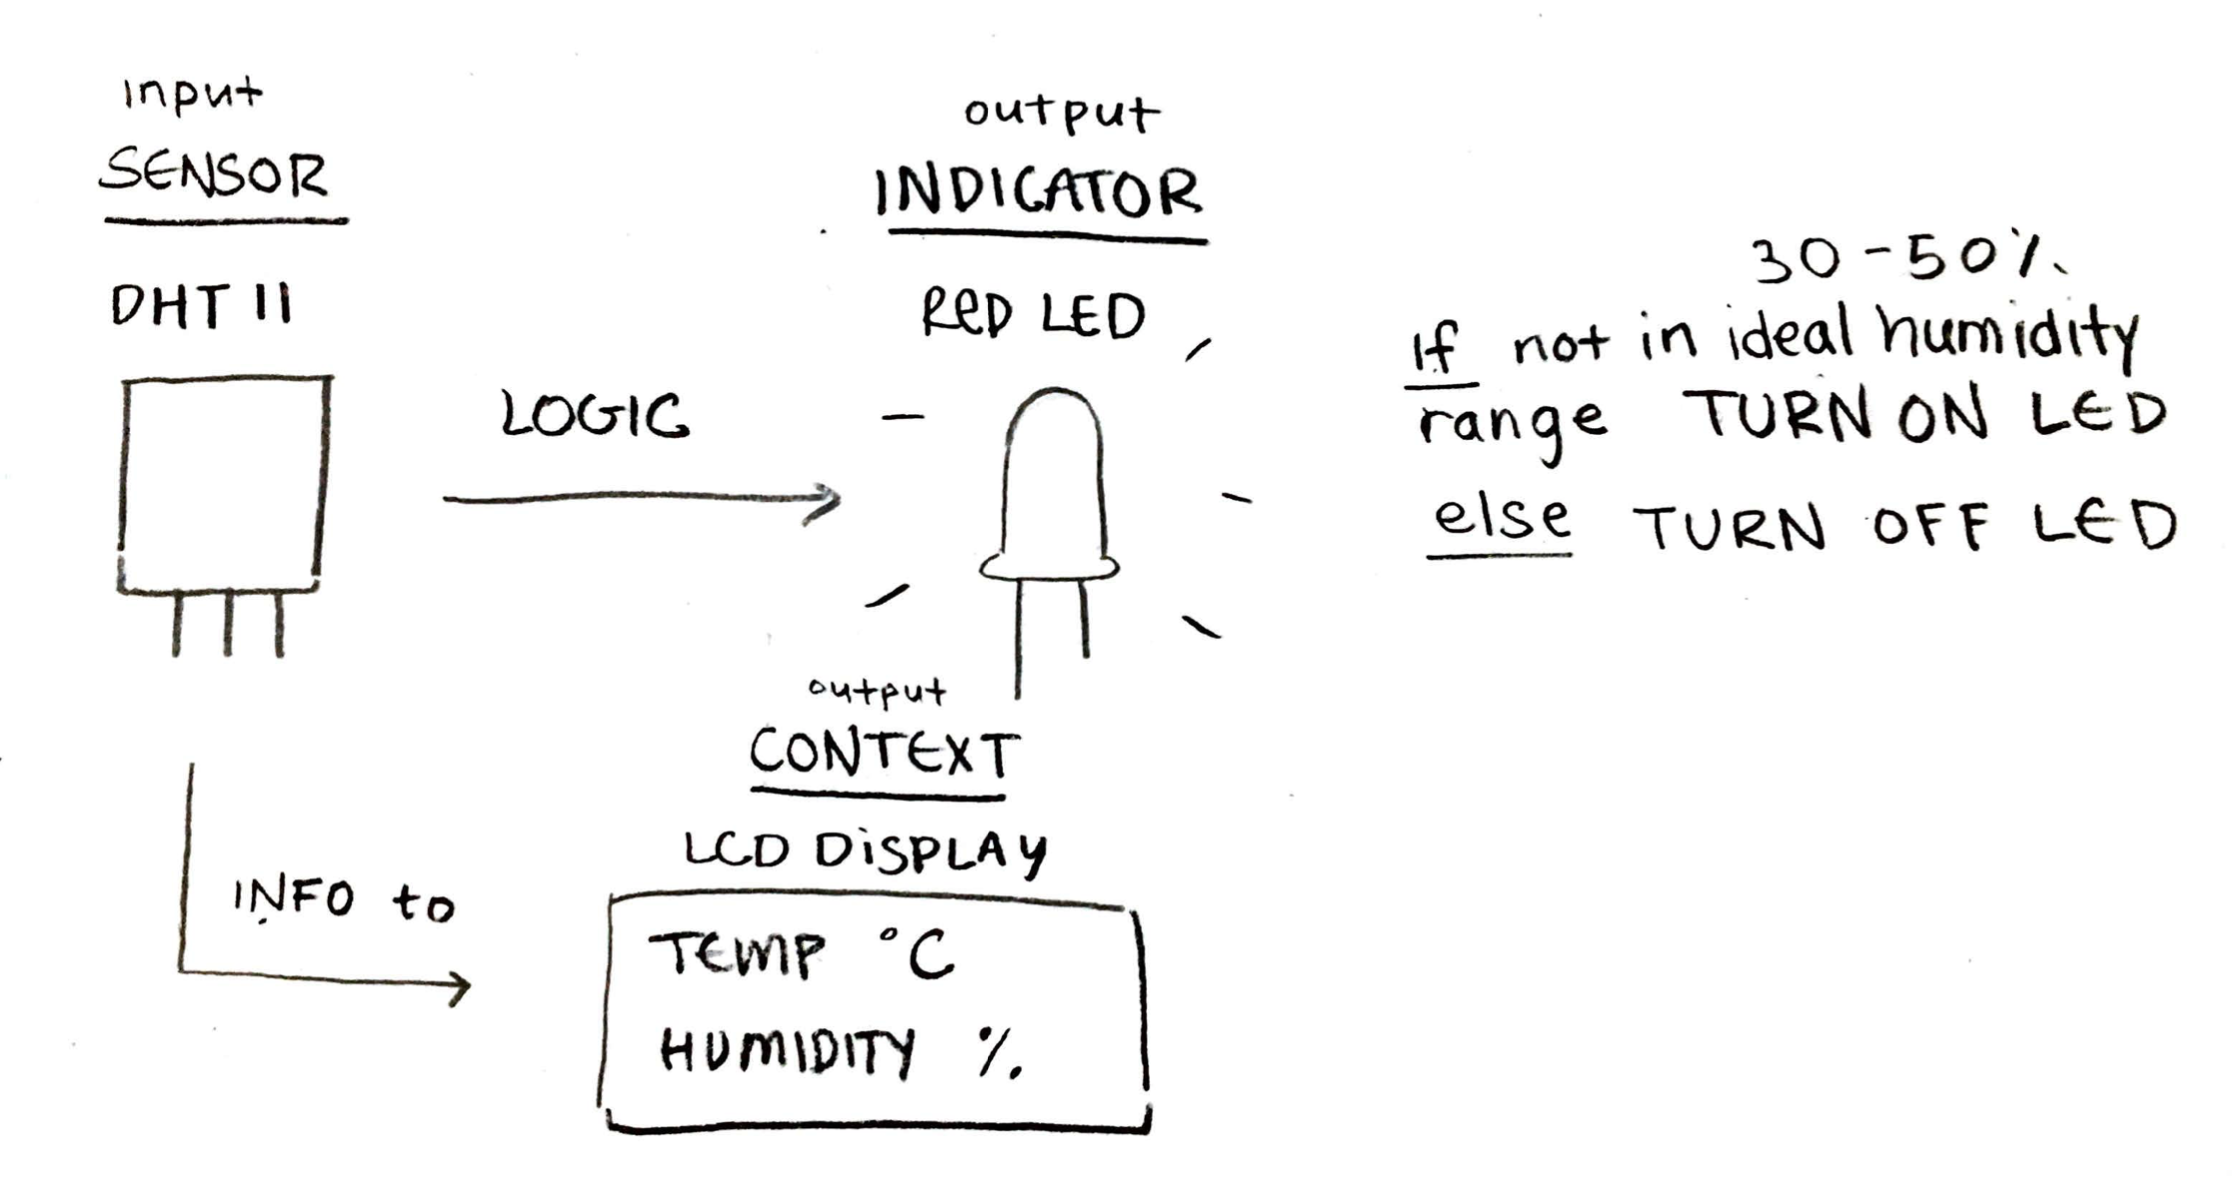 input
SENSOR
DHT 11
LOGIC
output
INDICATOR
RED LED
30-50%
If not in ideal humidity
range TURN ON LED
else TURN OFF LED
INFO to
output
CONTEXT
LCD DiSPLAY
TEMP °C
HUMIDITY %